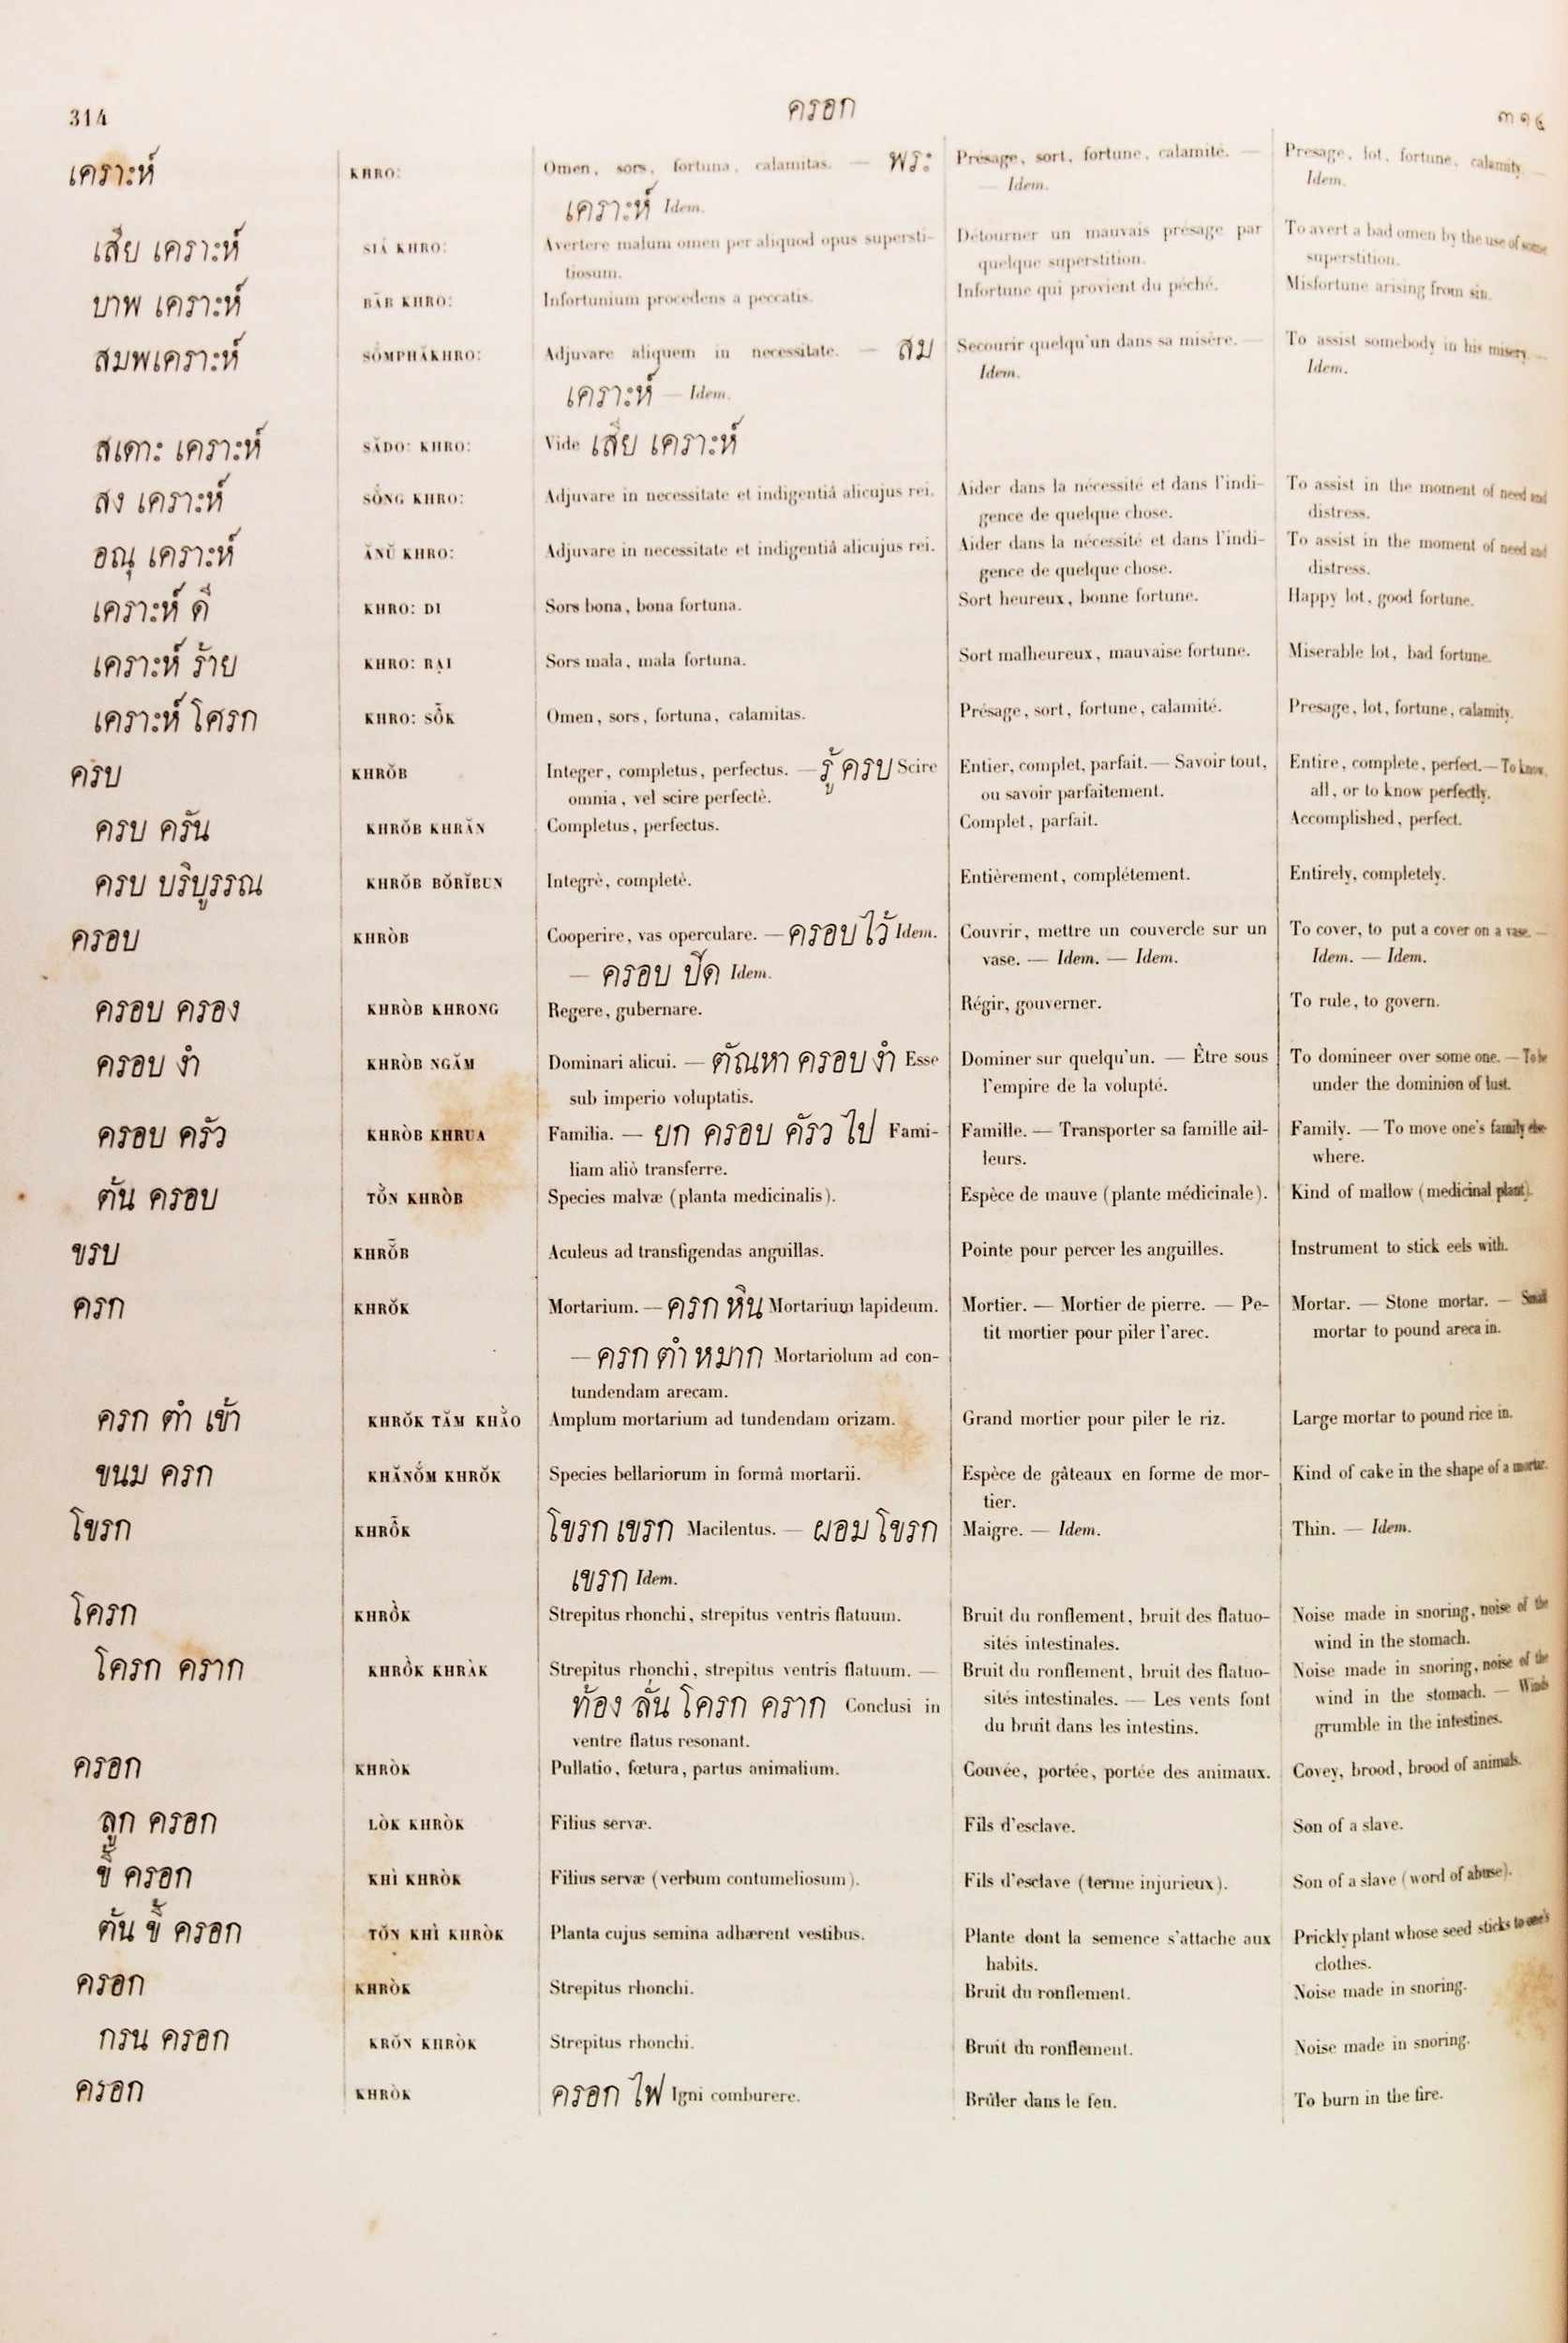 314
ครอก
๓๑๔
เคราะห์ KHRO: Omen, sors, fortuna, calamitas. — พระ Présage, sort, fortune, calamité. — Presage, lot, fortune, calamity. —
เคราะห์ Idem. — Idem. Idem.
เสีย เคราะห์ SIÁ KHRO: Avertere malum omen per aliquod opus supersti- Détourner un mauvais présage par To avert a bad omen by the use of some
tiosum. quelque superstition. superstition.
บาพ เคราะห์ BĀB KHRO: Infortunium procedens a peccatis. Infortune qui provient du péché. Misfortune arising from sin.
สมพเคราะห์ SŎMPHĂKHRO: Adjuvare aliquem in necessitate. — สม Secourir quelqu'un dans sa misère. — To assist somebody in his misery. —
เคราะห์ — Idem. Idem. Idem.
สเดาะ เคราะห์ SĂDO: KHRO: Vide เสีย เคราะห์
สง เคราะห์ SŎNG KHRO: Adjuvare in necessitate et indigentiâ alicujus rei. Aider dans la nécessité et dans l'indi- To assist in the moment of need and
gence de quelque chose. distress.
อณุ เคราะห์ ĂNŬ KHRO: Adjuvare in necessitate et indigentiâ alicujus rei. Aider dans la nécessité et dans l'indi- To assist in the moment of need and
gence de quelque chose. distress.
เคราะห์ ดี KHRO: DI Sors bona, bona fortuna. Sort heureux, bonne fortune. Happy lot, good fortune.
เคราะห์ ร้าย KHRO: RẠI Sors mala, mala fortuna. Sort malheureux, mauvaise fortune. Miserable lot, bad fortune.
เคราะห์ โศรก KHRO: SỖK Omen, sors, fortuna, calamitas. Présage, sort, fortune, calamité. Presage, lot, fortune, calamity.
ครบ KHRŎB Integer, completus, perfectus. — รู้ ครบ Scire Entier, complet, parfait. — Savoir tout, Entire, complete, perfect. — To know,
omnia, vel scire perfectè. ou savoir parfaitement. all, or to know perfectly.
ครบ ครัน KHRŎB KHRĂN Completus, perfectus. Complet, parfait. Accomplished, perfect.
ครบ บริบูรรณ KHRŎB BŎRĬBUN Integrè, completè. Entièrement, complétement. Entirely, completely.
ครอบ KHRÒB Cooperire, vas operculare. — ครอบ ไว้ Idem. Couvrir, mettre un couvercle sur un To cover, to put a cover on a vase. —
— ครอบ ปิด Idem. vase. — Idem. — Idem. Idem. — Idem.
ครอบ ครอง KHRÒB KHRONG Regere, gubernare. Régir, gouverner. To rule, to govern.
ครอบ งำ KHRÒB NGĂM Dominari alicui. — ตัณหา ครอบ งำ Esse Dominer sur quelqu'un. — Être sous To domineer over some one. — To be
sub imperio voluptatis. l'empire de la volupté. under the dominion of lust.
ครอบ ครัว KHRÒB KHRUA Familia. — ยก ครอบ คัรว ไป Fami- Famille. — Transporter sa famille ail- Family. — To move one's family else-
liam aliò transferre. leurs. where.
ต้น ครอบ TỞN KHRÒB Species malvæ (planta medicinalis). Espèce de mauve (plante médicinale). Kind of mallow (medicinal plant).
ขรบ KHRỖB Aculeus ad transfigendas anguillas. Pointe pour percer les anguilles. Instrument to stick eels with.
ครก KHRŎK Mortarium. — ครก หิน Mortarium lapideum. Mortier. — Mortier de pierre. — Pe- Mortar. — Stone mortar. — Small
— ครก ตำ หมาก Mortariolum ad con- tit mortier pour piler l'arec. mortar to pound areca in.
tundendam arecam.
ครก ตำ เข้า KHRŎK TĂM KHÀO Amplum mortarium ad tundendam orizam. Grand mortier pour piler le riz. Large mortar to pound rice in.
ขนม ครก KHĂNỎM KHRŎK Species bellariorum in formâ mortarii. Espèce de gâteaux en forme de mor- Kind of cake in the shape of a mortar.
tier.
โขรก KHRỖK โขรก เขรก Macilentus. — ผอม โขรก Maigre. — Idem. Thin. — Idem.
เขรก Idem.
โครก KHRỒK Strepitus rhonchi, strepitus ventris flatuum. Bruit du ronflement, bruit des flatuo- Noise made in snoring, noise of the
sités intestinales. wind in the stomach.
โครก คราก KHRỒK KHRÀK Strepitus rhonchi, strepitus ventris flatuum. — Bruit du ronflement, bruit des flatuo- Noise made in snoring, noise of the
ท้อง ลั่น โครก คราก Conclusi in sités intestinales. — Les vents font wind in the stomach. — Winds
ventre flatus resonant. du bruit dans les intestins. grumble in the intestines.
ครอก KHRÒK Pullatio, fœtura, partus animalium. Couvée, portée, portée des animaux. Covey, brood, brood of animals.
ลูก ครอก LÒK KHRÒK Filius servæ. Fils d'esclave. Son of a slave.
ขี้ ครอก KHÌ KHRÒK Filius servæ (verbum contumeliosum). Fils d'esclave (terme injurieux). Son of a slave (word of abuse).
ต้น ขี้ ครอก TỞN KHÌ KHRÒK Planta cujus semina adhærent vestibus. Plante dont la semence s'attache aux Prickly plant whose seed sticks to one's
habits. clothes.
ครอก KHRÒK Strepitus rhonchi. Bruit du ronflement. Noise made in snoring.
กรน ครอก KRŎN KHRÒK Strepitus rhonchi. Bruit du ronflement. Noise made in snoring.
ครอก KHRÒK ครอก ไฟ Igni comburere. Brûler dans le feu. To burn in the fire.